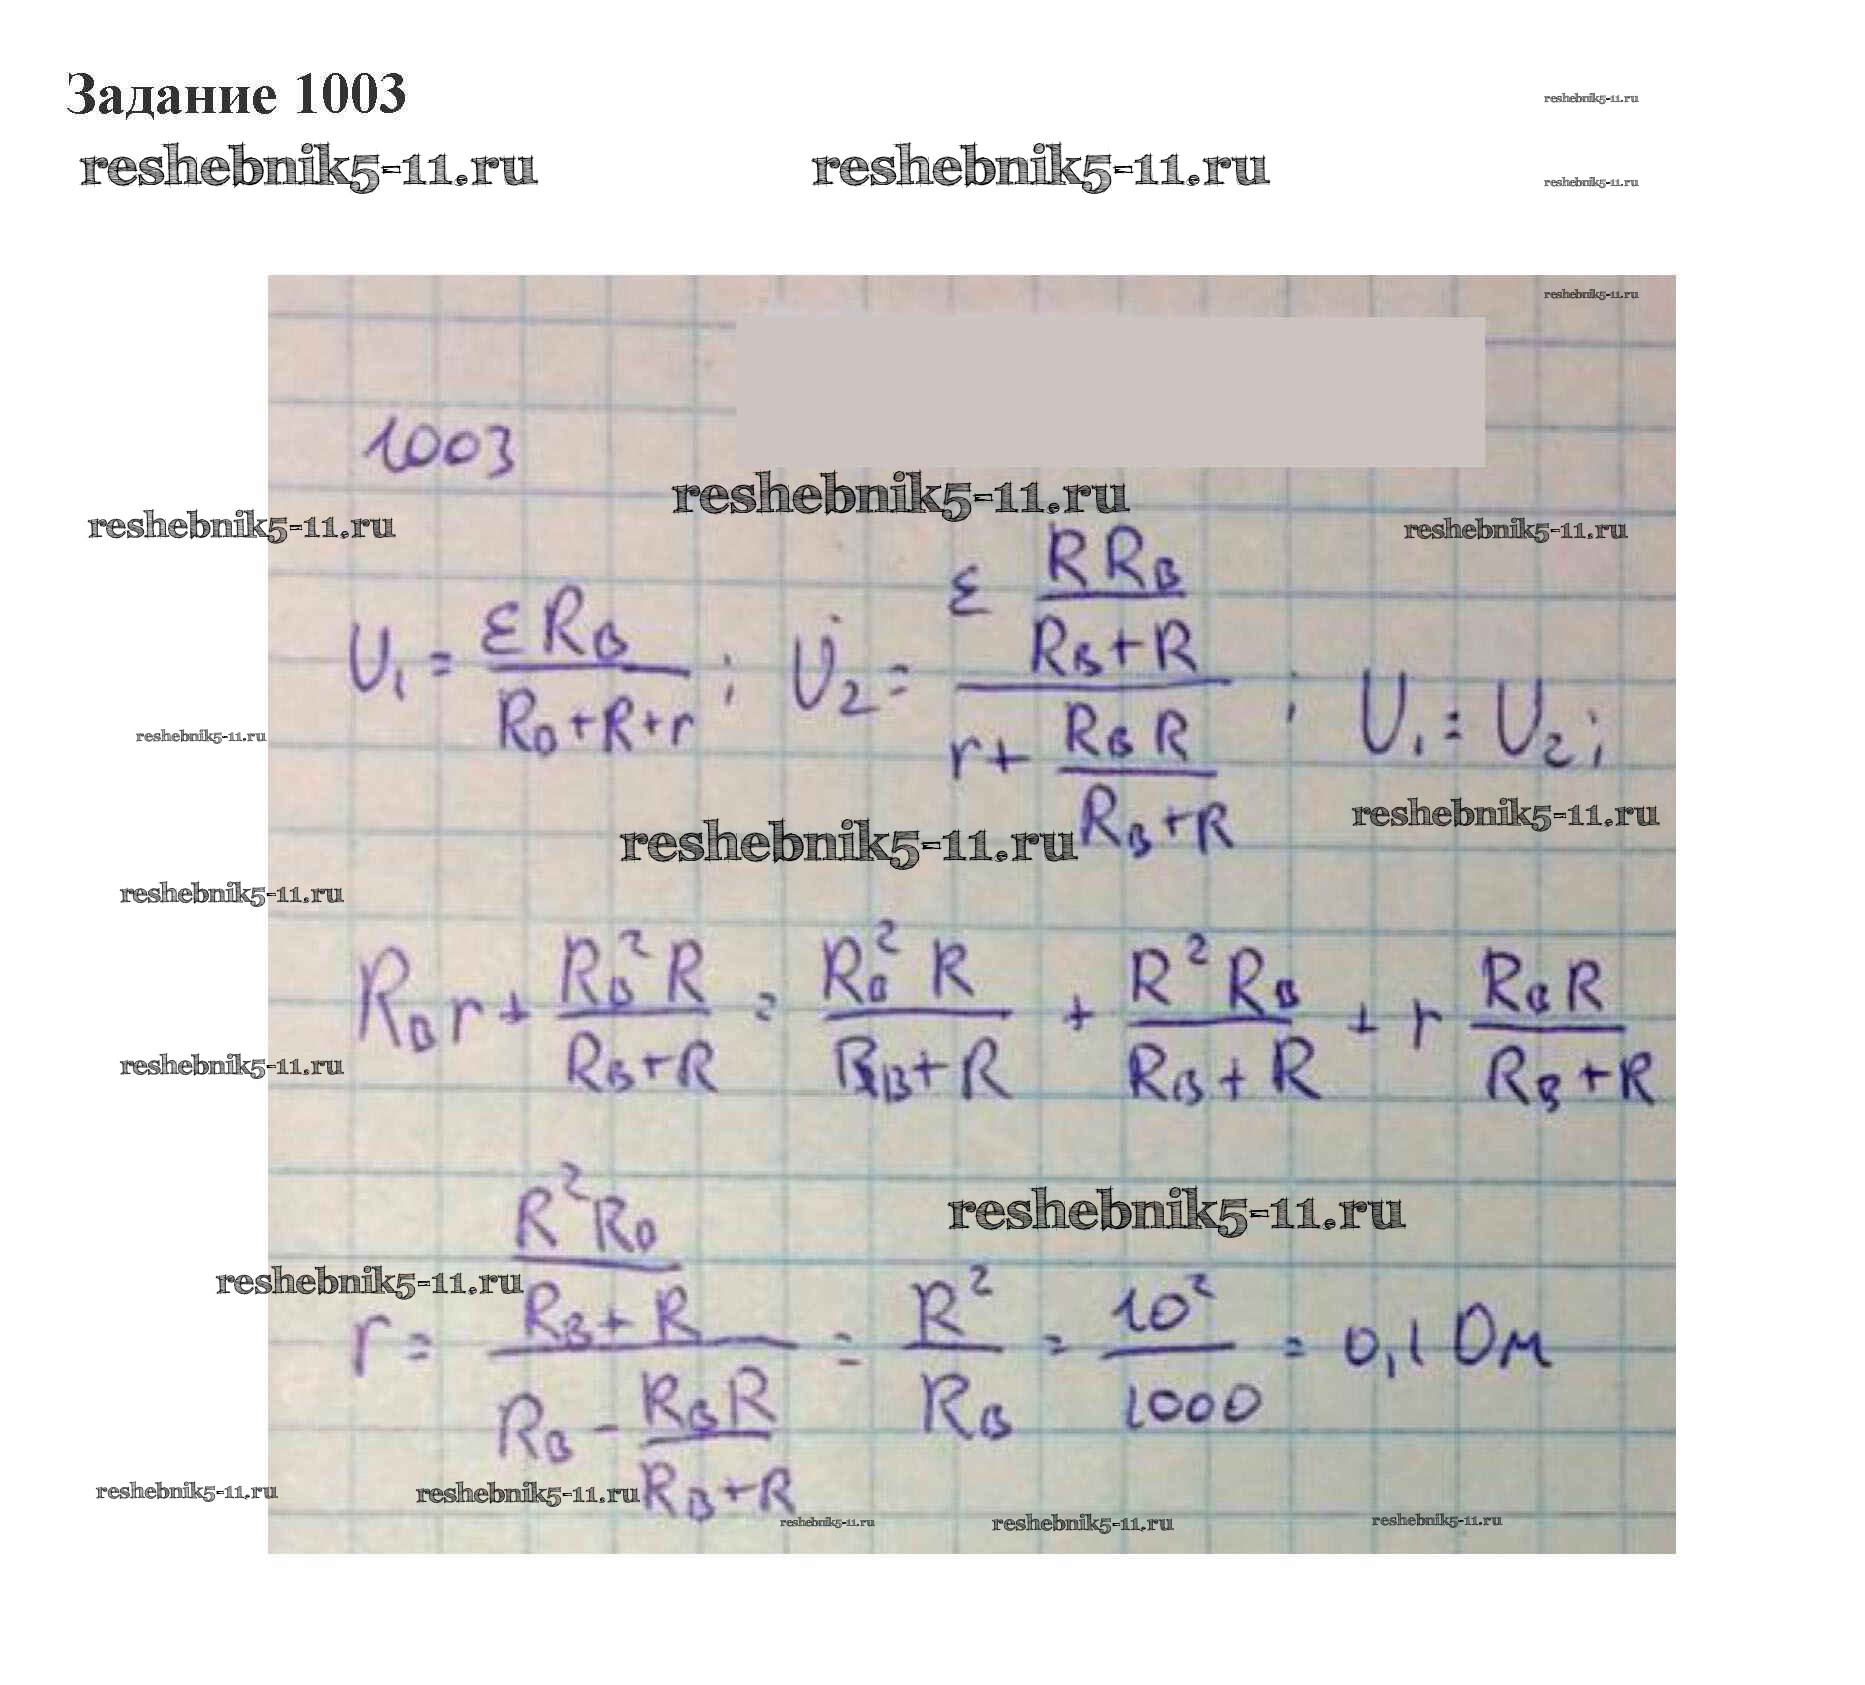 Задание 1003
reshebnik5-11.ru
reshebnik5-11.ru reshebnik5-11.ru
reshebnik5-11.ru
reshebnik5-11.ru
1003
reshebnik5-11.ru
reshebnik5-11.ru reshebnik5-11.ru
U₁ = εR_B / (R_0 + R + r) ; U₂ = (ε (R R_B)/(R_B + R)) / (r + (R_B R)/(R_B + R)) ; U₁ = U₂ ;
reshebnik5-11.ru
reshebnik5-11.ru
reshebnik5-11.ru
reshebnik5-11.ru
R_B r + (R_B² R)/(R_B + R) = (R_B² R)/(R_B + R) + (R² R_B)/(R_B + R) + r (R_B R)/(R_B + R)
reshebnik5-11.ru
reshebnik5-11.ru
reshebnik5-11.ru
r = ((R² R_0)/(R_B + R)) / (R_B - (R_B R)/(R_B + R)) = R²/R_B = 10²/1000 = 0,1 Ом
reshebnik5-11.ru reshebnik5-11.ru
reshebnik5-11.ru reshebnik5-11.ru reshebnik5-11.ru